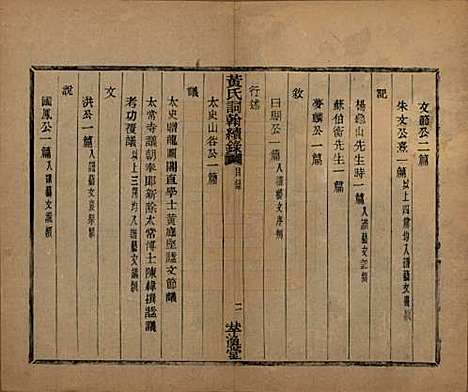 文節公二篇
朱文公熹一篇以上四篇均入譜藝文書類
記
楊龜山先生時一篇入譜藝文記類
蘇伯衡先生一篇
敘
夢麟公一篇
行述
曰瑚公一篇入譜藝文序類
黃氏詞翰續錄 目錄 二 萃渙堂
太史山谷公一篇
議
太史贈龍圖閣直學士黃庭堅諡文節議
太常寺議朝奉郎新除太常博士陳緯撰諡議
考功覆議以上三篇均入譜藝文議類
文
洪公一篇入譜藝文哀祭類
說
國鳳公一篇入譜藝文說類